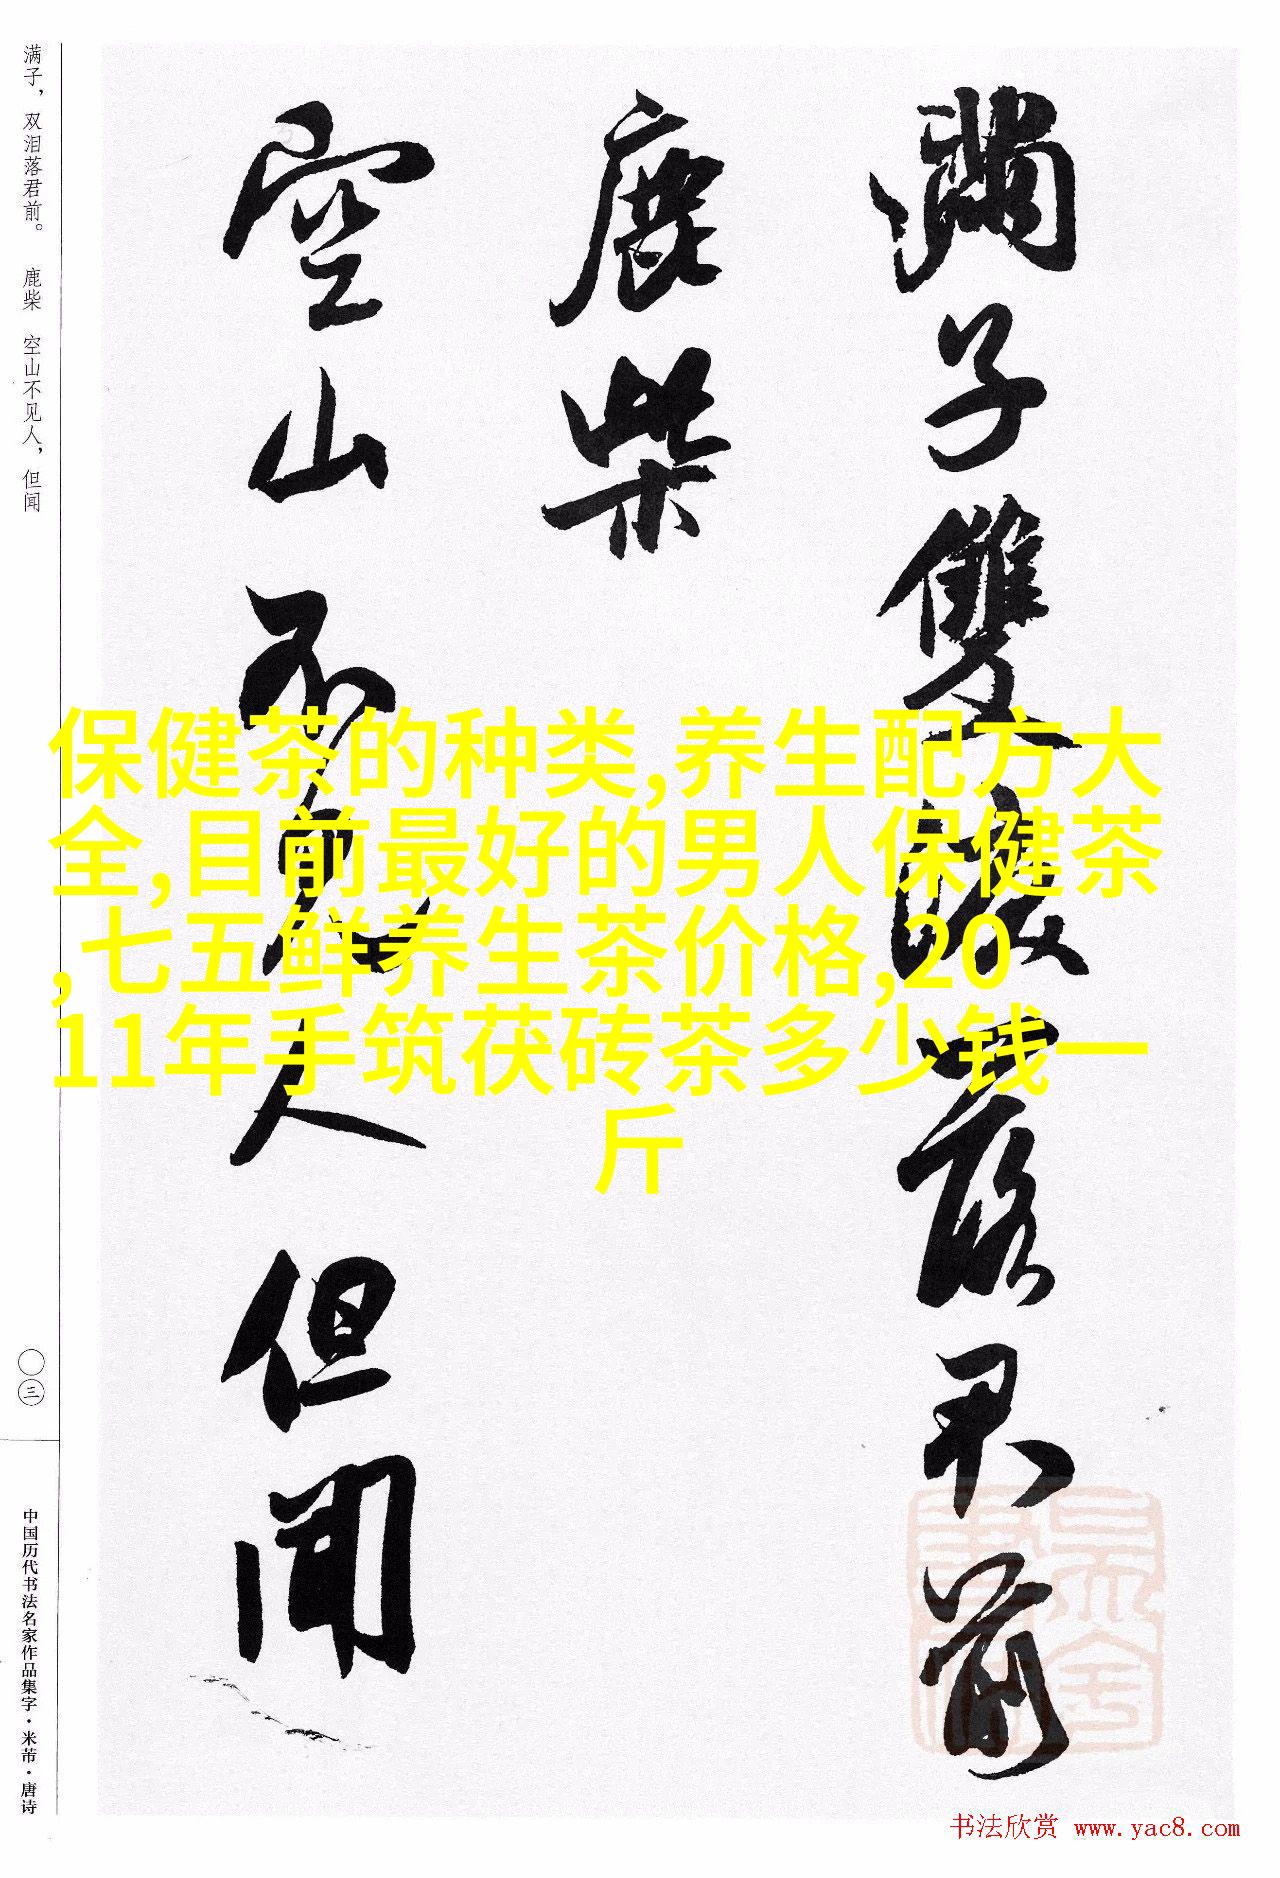 满子，双泪落君前。 鹿柴 空山不见人，但闻
〇三
中国历代书法名家作品集字·米芾·唐诗
满子雙淚落君前
鹿柴
空山不見人但聞
保健茶的种类,养生配方大
全,目前最好的男人保健茶
,七五鲜养生茶价格,20
11年手筑茯砖茶多少钱一
斤
书法欣赏 www.yac8.com